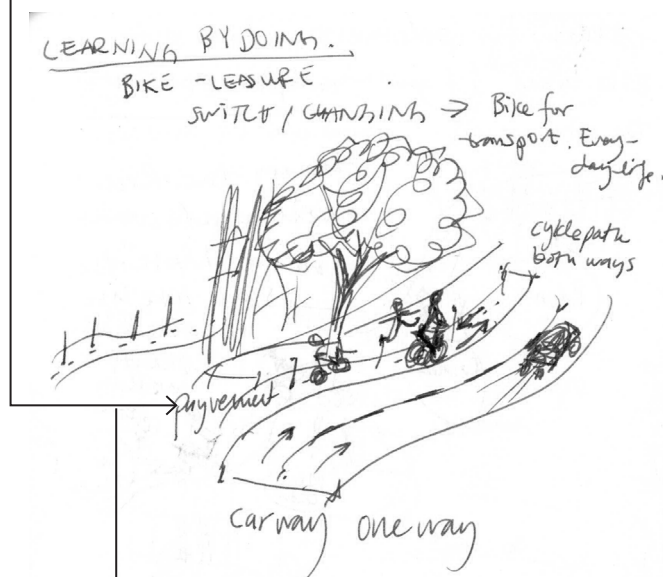 LEARNING BY DOING.
BIKE - LEASURE
SWITCH / CHANGING → Bike for
transport. Every-
day-life.
cykle path
both ways
payvement
carway one way